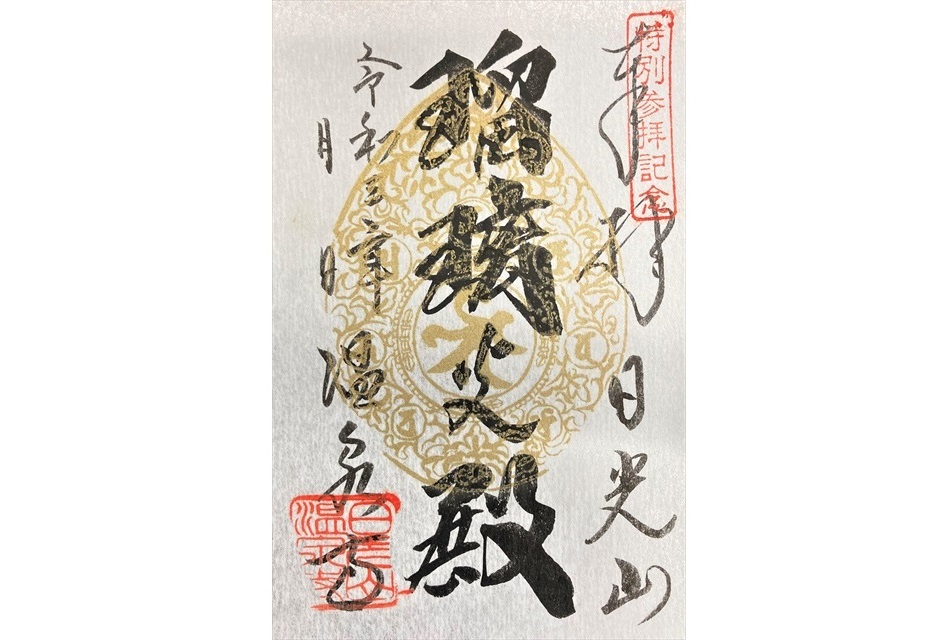 特別参拝記念
奉拝 日光山
瑠璃光殿
令和三年 月 日 温泉寺
日光山温泉寺